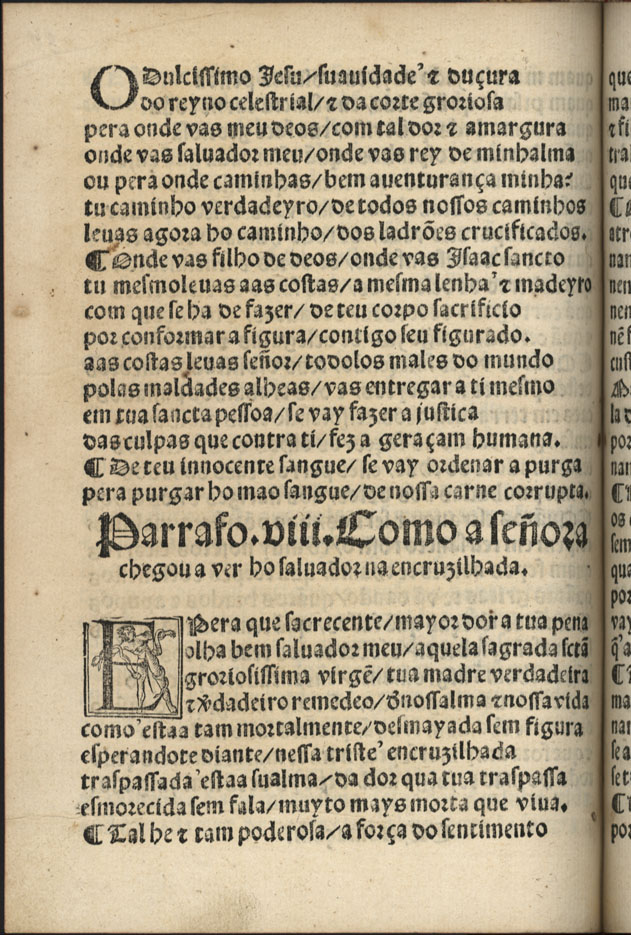 O Dulcissimo Jesu/suauidade ⁊ duçura
do reyno celestrial/⁊ da corte groriosa
pera onde vas meu deos/com tal dor ⁊ amargura
onde vas saluador meu/onde vas rey de minhalma
ou pera onde caminhas/bem auenturança minha?
tu caminho verdadeyro/de todos nossos caminhos
leuas agora ho caminho/dos ladrões crucificados.
¶ Onde vas filho de deos/onde vas Isaac sancto
tu mesmo leuas aas costas/a mesma lenha ⁊ madeyro
com que se ha de fazer/de teu corpo sacrificio
por conformar a figura/contigo seu figurado.
aas costas leuas señor/todolos males do mundo
polas maldades alheas/vas entregar a ti mesmo
em tua sancta pessoa/se vay fazer a justica
das culpas que contra ti/fez a geraçam humana.
¶ De teu innocente sangue/se vay ordenar a purga
pera purgar ho mao sangue/de nossa carne corrupta.
Parrafo.viii.Como a señora
chegou a ver ho saluador na encruzilhada.
Pera que sacrecente/mayor dor a tua pena
olha bem saluador meu/aquela sagrada sctã
groriosissima virgẽ/tua madre verdadeira
⁊ ꝟdadeiro remedeo/d̃ nossalma ⁊ nossa vida
como estaa tam mortalmente/desmayada sem figura
esperandote diante/nessa triste encruzilhada
traspassada estaa sualma/da dor qua tua traspassa
esmorecida sem fala/muyto mays morta que viua.
¶ Tal he ⁊ tam poderosa/a força do sentimento